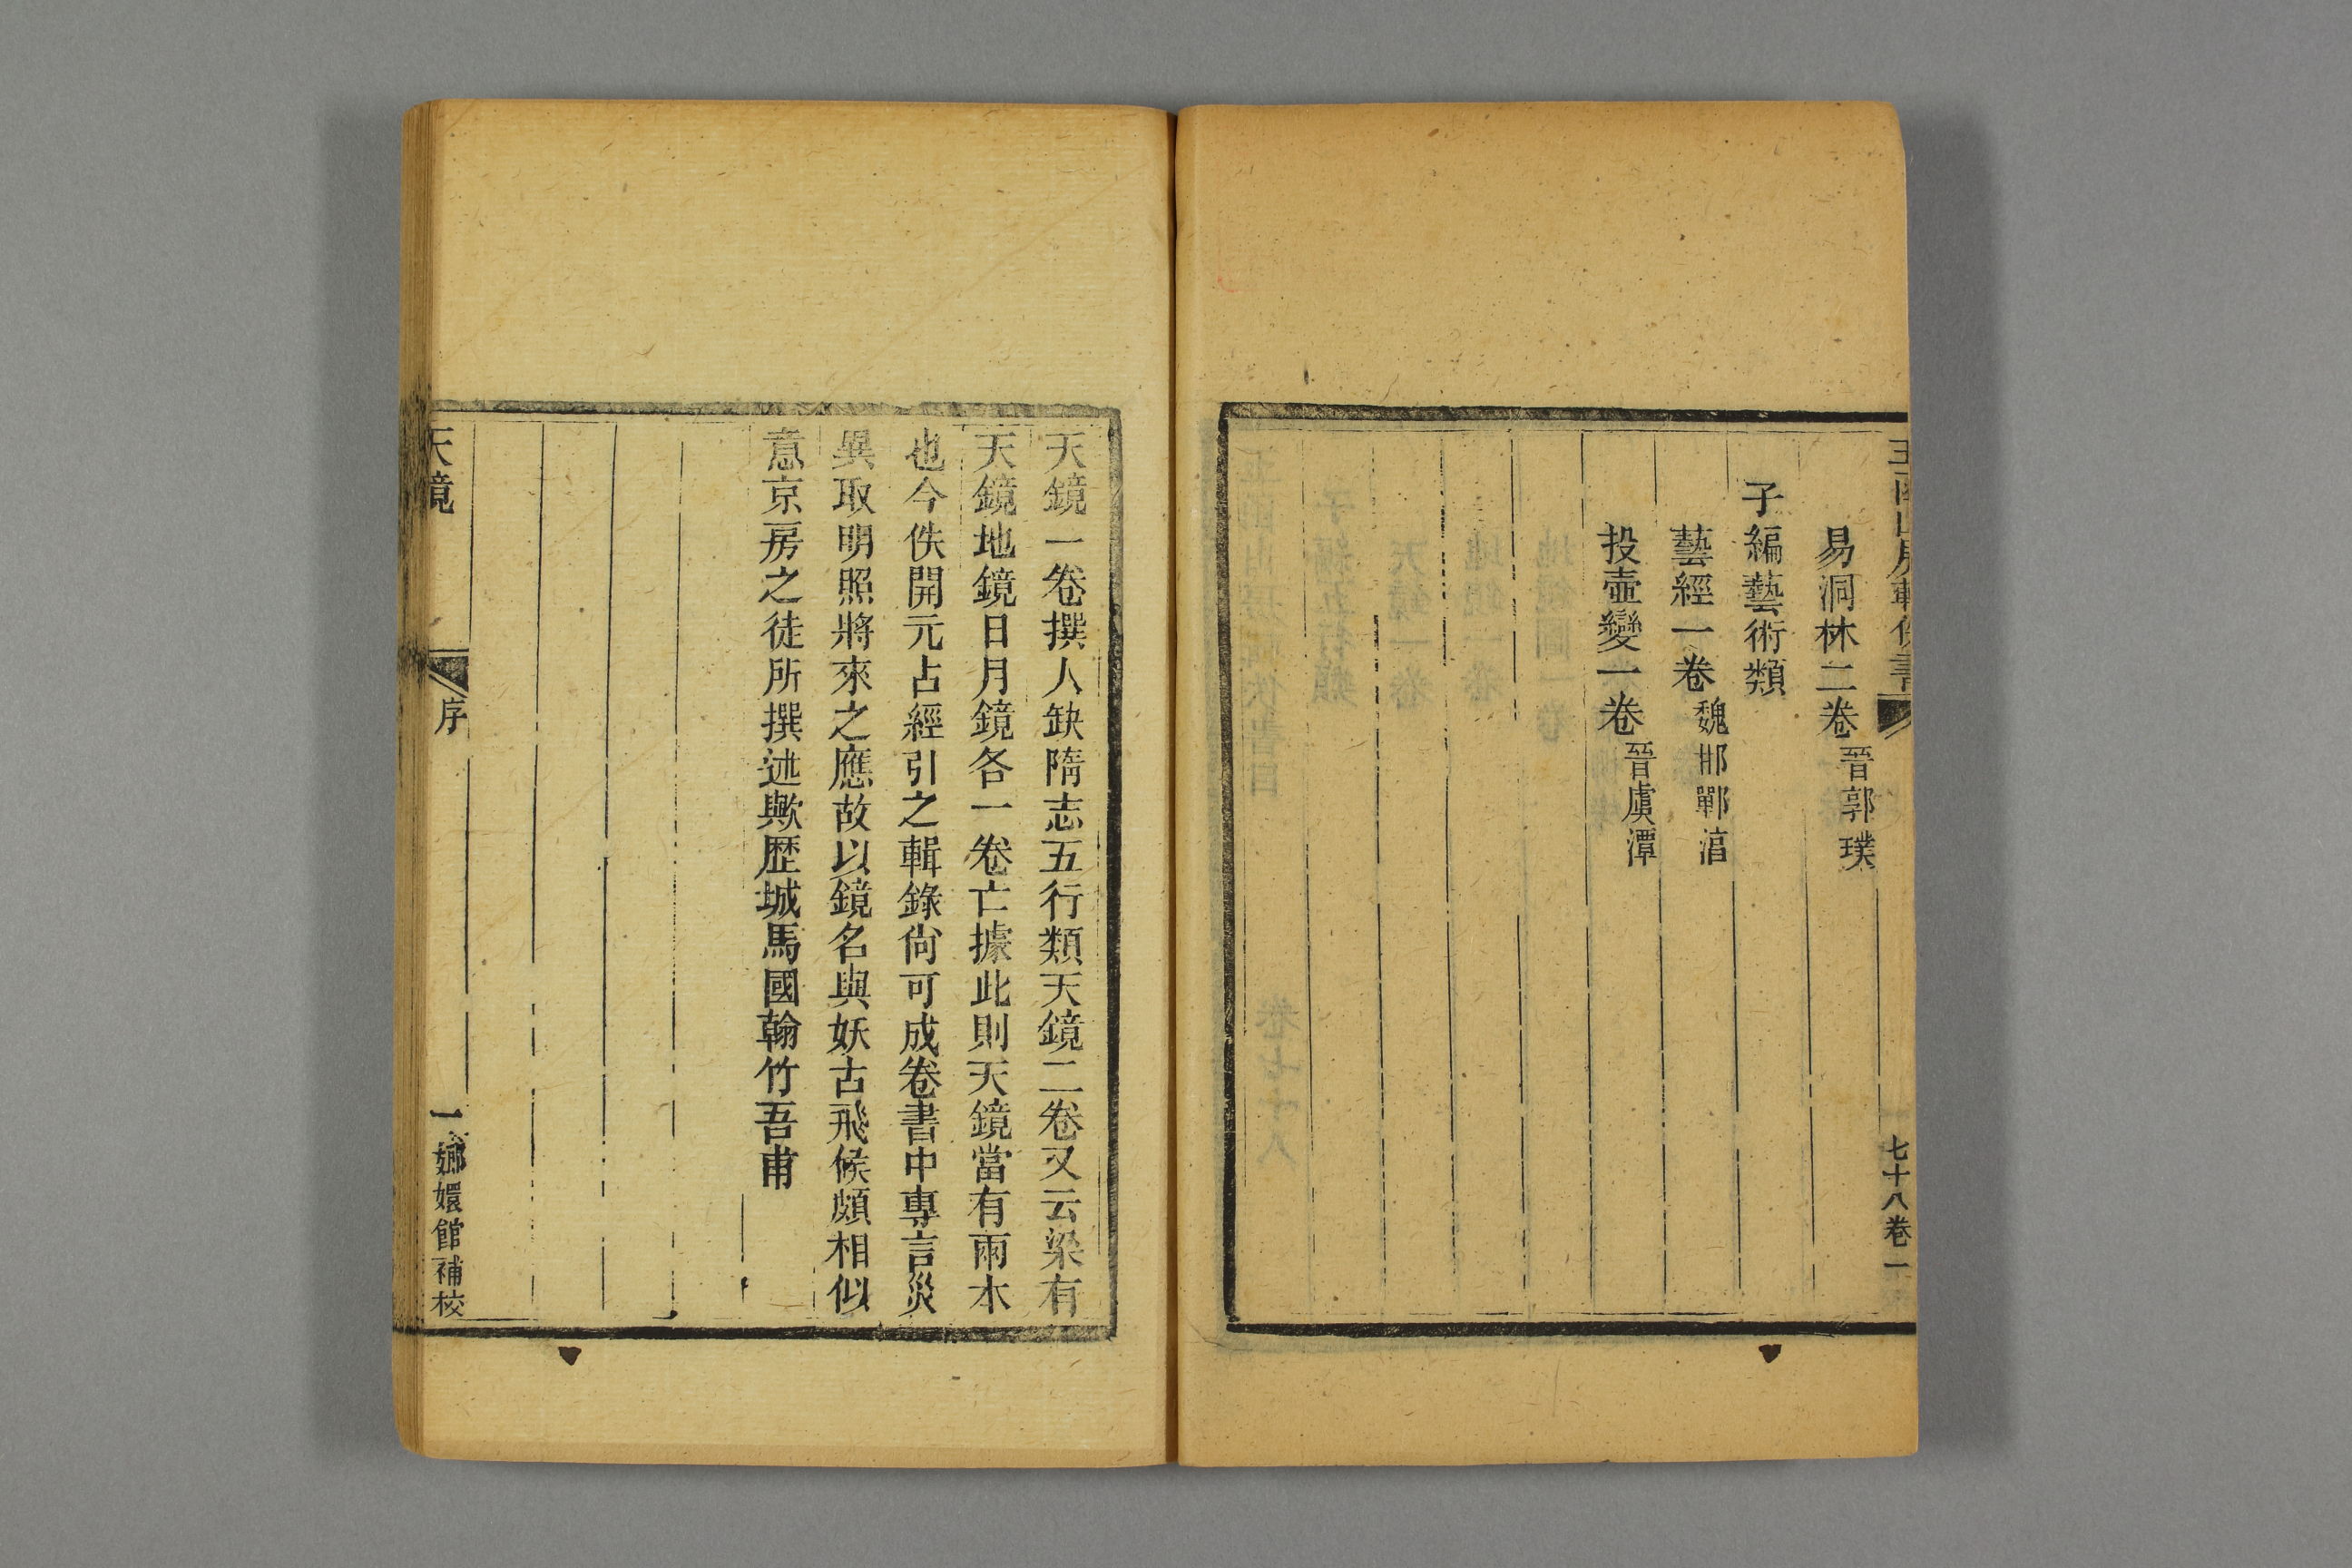 玉函山房輯佚書
七十八卷 一
易洞林二卷 晉郭璞
子編藝術類
藝經一卷 魏邯鄲湻
投壷變一卷 晉虞潭
天鏡一卷撰人缺隋志五行類天鏡二卷又云梁有
天鏡地鏡日月鏡各一卷亡據此則天鏡當有兩本
也今佚開元占經引之輯錄尙可成卷書中專言災
異取明照將來之應故以鏡名與妖古飛候頗相似
意京房之徒所撰述歟歴城馬國翰竹吾甫
天鏡
序
一
嫏嬛館補校